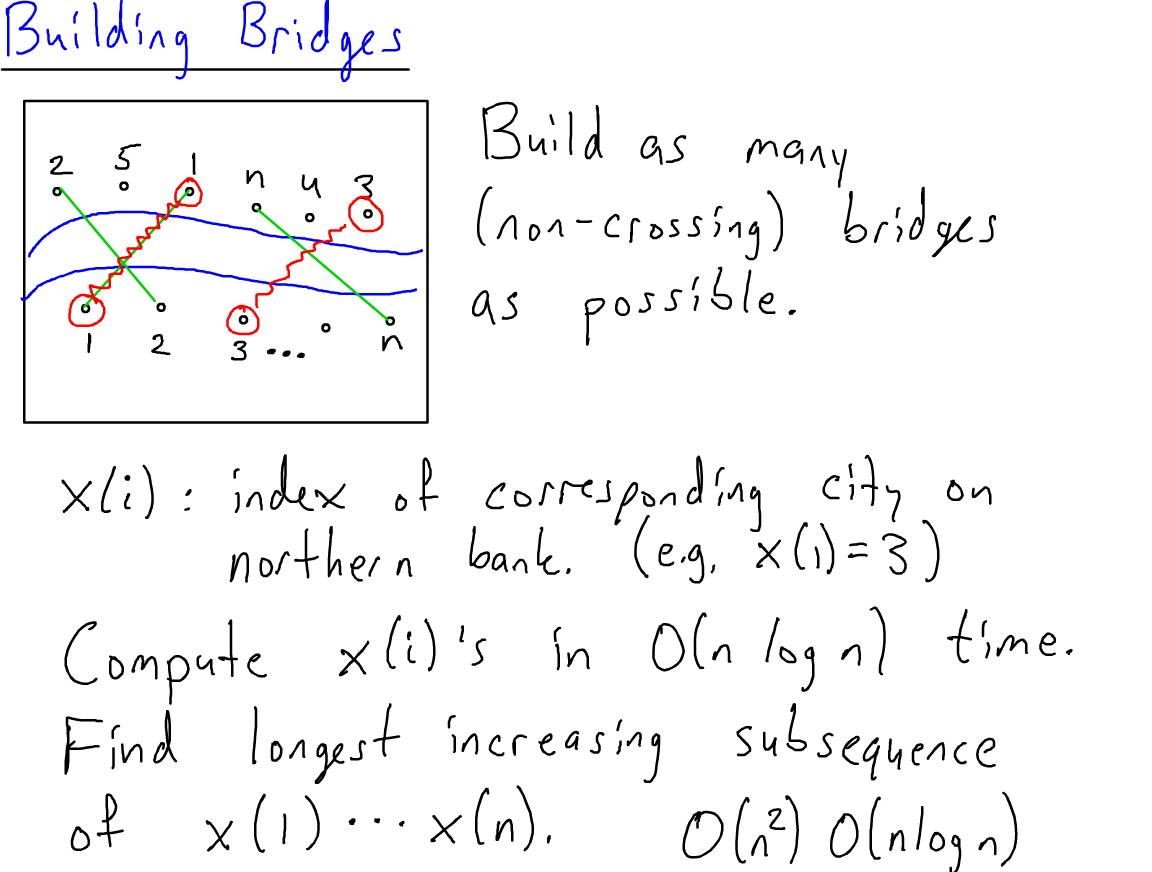 Building Bridges
2 5 1 n 4 3
1 2 3 ... n
Build as many
(non-crossing) bridges
as possible.
x(i): index of corresponding city on
northern bank. (e.g. x(1)=3)
Compute x(i)'s in O(n log n) time.
Find longest increasing subsequence
of x(1) ... x(n). O(n²) O(nlog n)